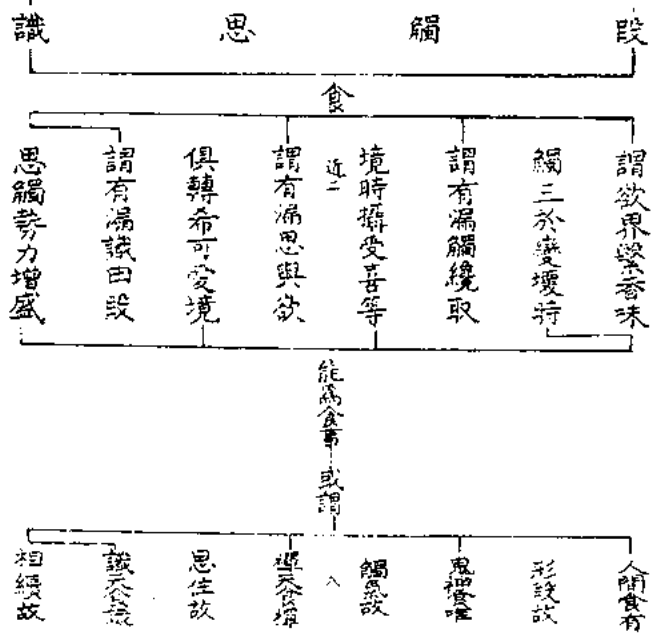 段
觸
思
識
食
謂欲界繫香味
觸三於變壞時
謂有漏觸纔取
境時攝受喜等
近二
謂有漏思與欲
俱轉希可愛境
謂有漏識由段
思觸勢力增盛
能為食事
或謂
人間食有
形段故
鬼神食唯
觸氣故
禪天食禪
思住故
識天食識
相續故